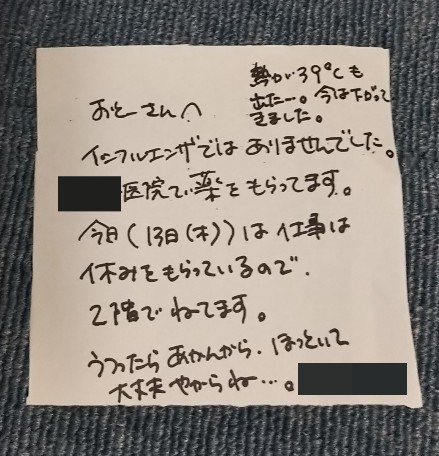 おとーさんへ
熱が39℃も
出たー。今は下がって
きました。
インフルエンザではありませんでした。
医院で薬をもらってます。
今日(13日(木))は仕事は
休みをもらっているので、
2階でねてます。
うつったらあかんから、ほっといて
大丈夫やからね…。